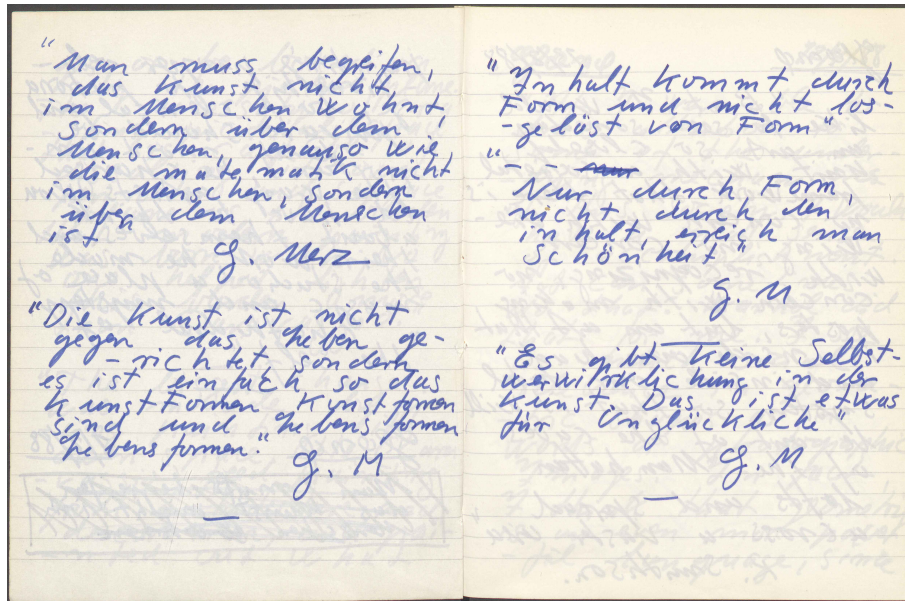 "Man muss begreifen,
das Kunst, nicht,
im Menschen wohnt,
sondern über dem
Menschen, genauso wie
die matematik nicht
im Menschen, sondern
über dem Menschen
ist
G. Merz
"Die Kunst ist nicht
gegen das Leben ge-
-richtet, sondern
es ist einfach so das
KunstFormen Kunstformen
sind und Lebensformen
Lebensformen."
G. M
—
"Inhalt kommt durch
Form und nicht los-
-gelöst von Form"
"– –
Nur durch Form,
nicht durch den
inhalt, ereich man
Schönheit"
G. M
"Es gibt keine Selbst-
verwirklichung in der
Kunst. Das ist etwas
für Unglückliche"
G. M
—